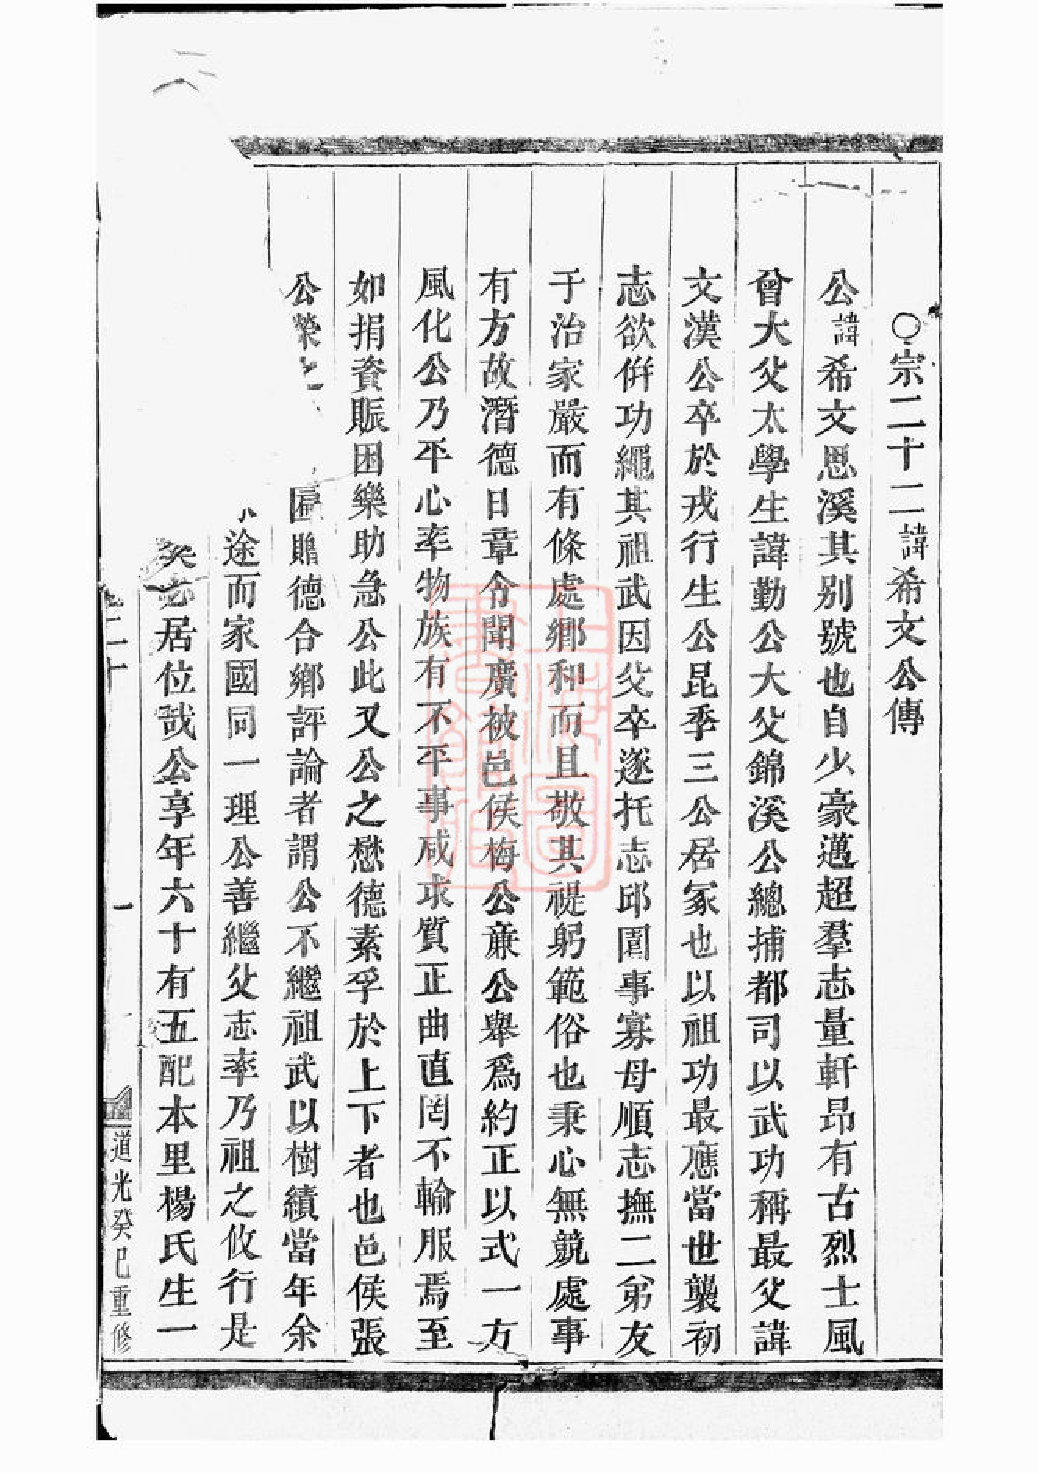 ○宗二十二諱希文公傳
公諱希文思溪其別號也自少豪邁超羣志量軒昂有古烈士風
曾大父太學生諱勤公大父錦溪公總捕都司以武功稱最父諱
文漢公卒於戎行生公昆季三公居冢也以祖功最應當世襲初
志欲倂功繩其祖武因父卒遂托志邱園事寡母順志撫二弟友
于治家嚴而有條處鄉和而且敬其禔躬範俗也秉心無競處事
有方故潛德日章令聞廣被邑侯梅公亷公舉爲約正以式一方
風化公乃平心率物族有不平事咸求質正曲直罔不輸服焉至
如捐資賑困樂助急公此又公之懋德素孚於上下者也邑侯張
公榮之匾贈德合鄉評論者謂公不繼祖武以樹績當年余
途而家國同一理公善繼父志率乃祖之攸行是
矣居位哉公享年六十有五配本里楊氏生一
二十
一
道光癸巳重修
上海圖書館藏